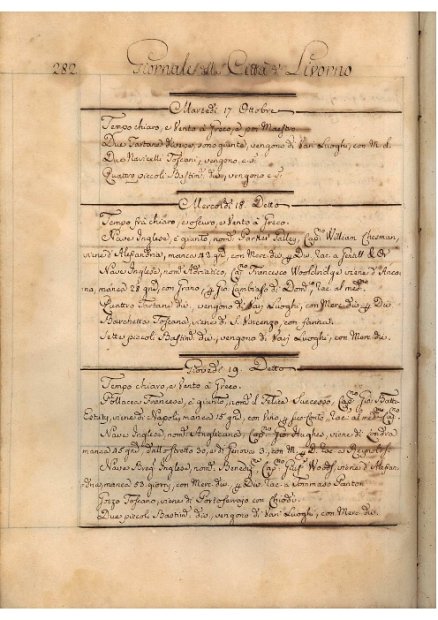 282. Giornale della Città di Livorno
Martedì 17 Ottobre
Tempo chiaro, e Vento à Greco, e poi Maestro
Due Tartane diverse, sono giunte, vengono di Varj Luoghi, con M. d.
Due Navicelli Toscani, vengono, e s.
Quattro piccoli Bastim. div. vengono e s.
Mercoledì 18 Detto
Tempo frà chiaro, e oscuro, e Vento à Greco.
Nave Inglese, è giunta, nom. Parker Galley, Cap. William Chesman,
viene d'Alessandria, manca 42 grd, con Merc. div. Rac. a
Nave Inglese, nom. Adriatico, Cap. Francesco Wooldridge viene d'Anco
na, manca 28 grd, con Grano,
Quattro Tartane div. vengono di Varj Luoghi, con Merc. div.
Barchetta Toscana, viene di S. Vincenzo, con
Sette piccoli Bastim. div., vengono di Varj Luoghi, con Mer. div.
Giovedì 19. Detto
Tempo chiaro, e Vento à Greco.
Pollacca Francese, è giunta, nom. il Felice Successo, Cap. Gio. Batt.
viene di Napoli, manca 15 grd, con Vino,
Nave Inglese, nom. Anglicana, Cap. Gio. Hughes, viene di Londra
manca 85 grd, dallo stretto 30, e di Genova 3, con M.
Nave Breg. Inglese, nom. Cap. viene d'Alessan
dria, manca 53 giorni, con Merc. div. Rac. a Tommaso Panton
Gozzo Toscano, viene di Portoferrajo con Chiodi.
Due piccoli Bastim. div., vengono di Varj Luoghi, con Mer. div.